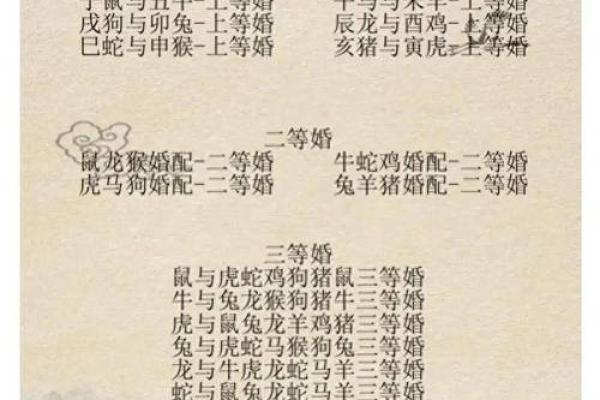 子鼠与丑牛-上等婚 午马与未羊-上等婚
戌狗与卯兔-上等婚 辰龙与酉鸡-上等婚
巳蛇与申猴-上等婚 亥猪与寅虎-上等婚
二等婚
鼠龙猴婚配-二等婚 牛蛇鸡婚配-二等婚
虎马狗婚配-二等婚 兔羊猪婚配-二等婚
三等婚
鼠与虎蛇鸡狗猪鼠三等婚
牛与兔龙猴狗猪牛三等婚
虎与鼠兔龙羊鸡猪三等婚
兔与虎蛇马猴狗兔三等婚
龙与牛虎龙蛇马羊三等婚
蛇与鼠兔龙蛇马羊三等婚